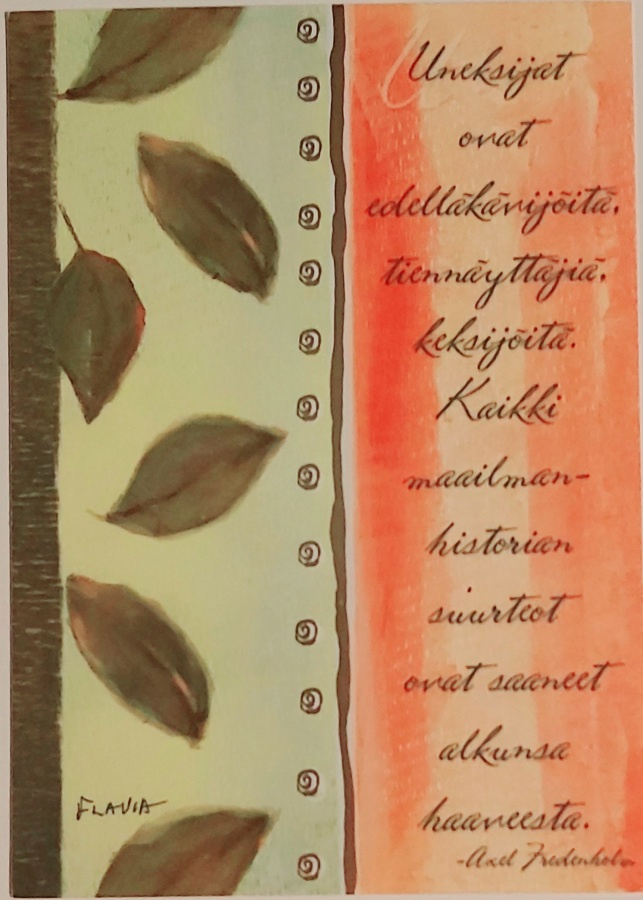 Uneksijat
ovat
edelläkävijöitä,
tiennäyttäjiä,
keksijöitä.
Kaikki
maailman-
historian
suurteot
ovat saaneet
alkunsa
haaveesta.
-Axel Fredenholm
FLAVIA